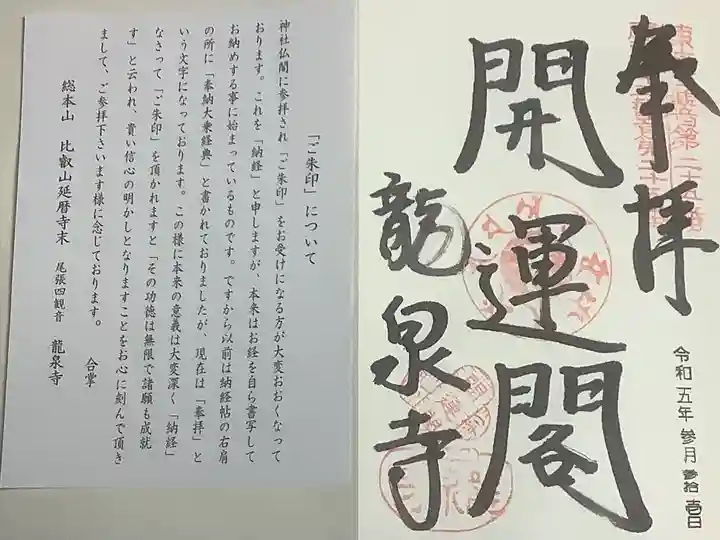 奉拝
開運閣
龍泉寺
令和五年参月参拾壱日
「ご朱印」について
神社仏閣に参拝され「ご朱印」をお受けになる方が大変おおくなって
おります。これを「納経」と申しますが、本来はお経を自ら書写して
お納めする事に始まっているものです。ですから以前は納経帖の右肩
の所に「奉納大乗経典」と書かれておりましたが、現在は「奉拝」と
いう文字になっております。この様に本来の意義は大変深く「納経」
なさって「ご朱印」を頂かれますと「その功徳は無限で諸願も成就
す」と云われ、貴い信心の明かしとなりますことをお心に刻んで頂き
まして、ご参拝下さいます様に念じております。
合掌
総本山 比叡山延暦寺末 尾張四観音 龍泉寺